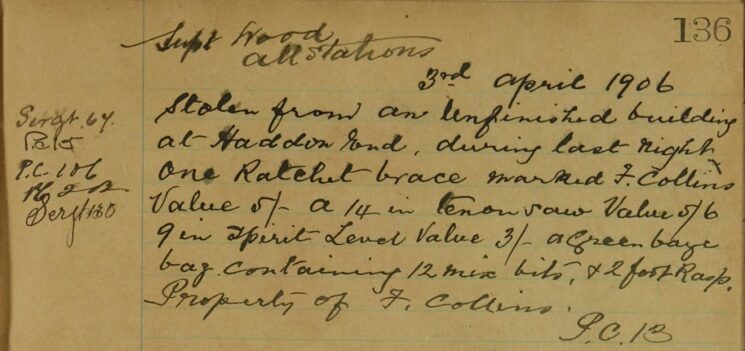 136
Supt Wood
all stations
3rd april 1906
Stolen from an Unfinished building
at Haddon End, during last night
One Ratchet brace marked F. Collins
Value 5/- a 14 in tenon saw Value 5/6
9 in Spirit Level Value 3/- a Green baze
bag. containing 12 mix bits, & 2 foot Rasp.
Property of F. Collins.
P.C. 13
Sergt. 64.
P.C. 106
Sergt 130